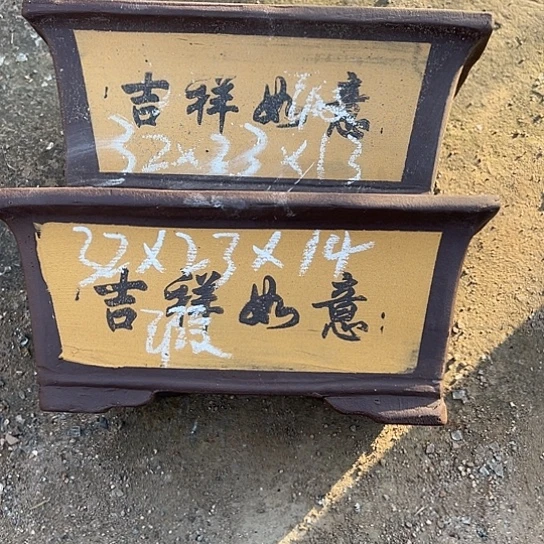 吉祥如意
32×23×13
32×23×14
吉祥如意